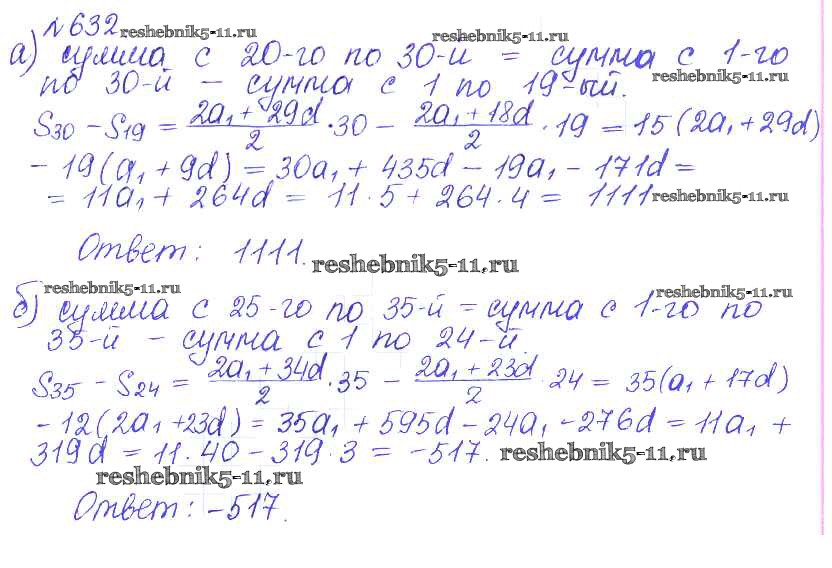 №632 reshebnik5-11.ru reshebnik5-11.ru
а) сумма с 20-го по 30-й = сумма с 1-го
по 30-й – сумма с 1 по 19-ый. reshebnik5-11.ru
S₃₀ – S₁₉ = (2a₁ + 29d)/2 · 30 – (2a₁ + 18d)/2 · 19 = 15(2a₁ + 29d)
– 19(a₁ + 9d) = 30a₁ + 435d – 19a₁ – 171d =
= 11a₁ + 264d = 11·5 + 264·4 = 1111 reshebnik5-11.ru
Ответ: 1111. reshebnik5-11.ru
reshebnik5-11.ru reshebnik5-11.ru
б) сумма с 25-го по 35-й = сумма с 1-го по
35-й – сумма с 1 по 24-й.
S₃₅ – S₂₄ = (2a₁ + 34d)/2 · 35 – (2a₁ + 23d)/2 · 24 = 35(a₁ + 17d)
– 12(2a₁ + 23d) = 35a₁ + 595d – 24a₁ – 276d = 11a₁ +
319d = 11·40 – 319·3 = –517. reshebnik5-11.ru
reshebnik5-11.ru
Ответ: –517.